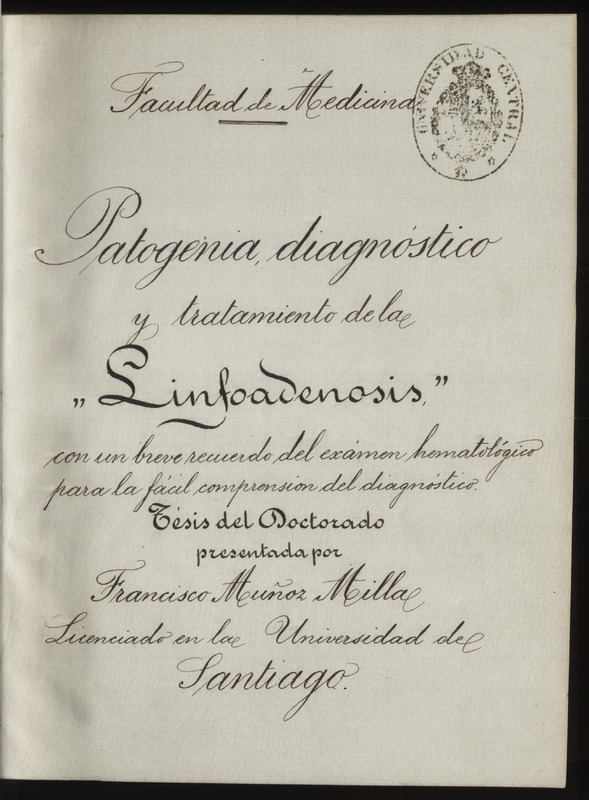 Facultad de Medicina
UNIVERSIDAD CENTRAL
Patogenia, diagnóstico
y tratamiento de la
„Linfoadenosis,”
con un breve recuerdo del exámen hematológico
para la fácil comprension del diagnóstico.
Tésis del Doctorado
presentada por
Francisco Muñoz Milla
Licenciado en la Universidad de
Santiago.